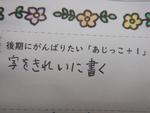 後期にがんばりたい「あじっこ+1」
字をきれいに書く